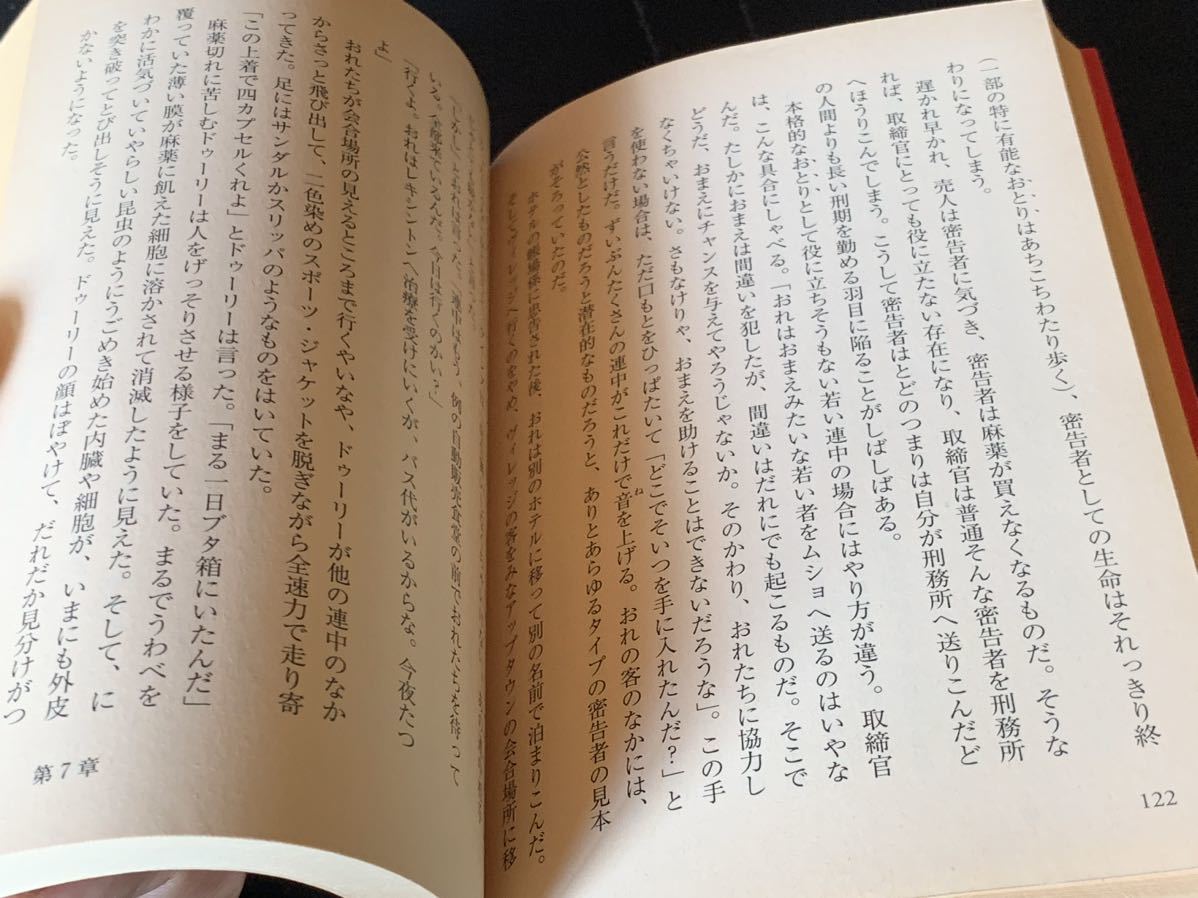 (一部の特に有能なおとりはあちこちわたり歩く)、密告者としての生命はそれっきり終
わりになってしまう。
遅かれ早かれ、売人は密告者に気づき、密告者は麻薬が買えなくなるものだ。そうな
れば、取締官にとっても役に立たない存在になり、取締官は普通そんな密告者を刑務所
へほうりこんでしまう。こうして密告者はとどのつまりは自分が刑務所へ送りこんだど
の人間よりも長い刑期を勤める羽目に陥ることがしばしばある。
本格的なおとりとして役に立ちそうもない若い連中の場合にはやり方が違う。取締官
は、こんな具合にしゃべる。「おれはおまえみたいな若い者をムショへ送るのはいやな
んだ。たしかにおまえは間違いを犯したが、間違いはだれにでも起こるものだ。そこで
どうだ、おまえにチャンスを与えてやろうじゃないか。そのかわり、おれたちに協力し
なくちゃいけない。さもなけりゃ、おまえを助けることはできないだろうな」。この手
を使わない場合は、ただ口もとをひっぱたいて「どこでそいつを手に入れたんだ?」と
言うだけだ。ずいぶんたくさんの連中がこれだけで音を上げる。おれの客のなかには、
ね
公然としたものだろうと潜在的なものだろうと、ありとあらゆるタイプの密告者の見本
がそろっていたのだ。
ホテルの帳場係に忠告された後、おれは別のホテルに移って別の名前で泊まりこんだ。
そしてヴィレッジへ行くのをやめ、ヴィレッジの客をみなアップタウンの会合場所に移
122
「しかし」とおれは言った。「連中はもう、例の自動販売食堂の前でおれたちを待って
いる。全部来ているんだ。今日は行くのかい?」
「行くよ。おれはレキシントンへ治療を受けにいくが、バス代がいるからな。今夜たつ
よ」
おれたちが会合場所の見えるところまで行くやいなや、ドゥーリーが他の連中のなか
からさっと飛び出して、二色染めのスポーツ・ジャケットを脱ぎながら全速力で走り寄
ってきた。足にはサンダルかスリッパのようなものをはいていた。
「この上着で四カプセルくれよ」とドゥーリーは言った。「まる一日ブタ箱にいたんだ」
麻薬切れに苦しむドゥーリーは人をげっそりさせる様子をしていた。まるでうわべを
覆っていた薄い膜が麻薬に飢えた細胞に溶かされて消滅したように見えた。そして、に
わかに活気づいていやらしい昆虫のようにうごめき始めた内臓や細胞が、いまにも外皮
を突き破ってとび出しそうに見えた。ドゥーリーの顔はぼやけて、だれだか見分けがつ
かないようになった。
第7章